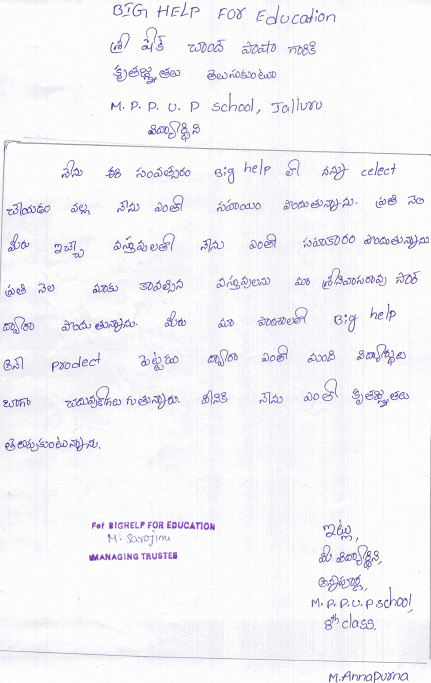 BIG HELP FOR Education
శ్రీ షేక్ చాంద్ పాషా గారికి
కృతజ్ఞతలు తెలుసుకుంటూ
M.P.P.U.P school, Jalluru
విద్యార్థిని
నేను ఈ సంవత్సరం Big help లో నన్ను celect
చేయడం వల్ల నేను ఎంతో సహాయం పొందుతున్నాను. ప్రతి నెల
మీరు ఇచ్చే వస్తువులతో నేను ఎంతో సహకారం పొందుతున్నాను
ప్రతి నెల మాకు కావల్సిన వస్తువులను మా శ్రీనివాసరావు సార్
ద్వారా పొందుతున్నాను. మీరు మా పాఠశాలలో Big help
అనే Prodect పెట్టడం ద్వారా ఎంతో మంది విద్యార్థులు
బాగా చదువుకోగలుగుతున్నారు. దీనికి నేను ఎంతో కృతజ్ఞతలు
తెలుపుకుంటున్నాను.
For BIGHELP FOR EDUCATION
M. Sarojini
MANAGING TRUSTEE
ఇట్లు,
మీ విద్యార్థిని,
అన్నపూర్ణ,
M.P.P.U.P school,
8th class.
M.AnnaPurna